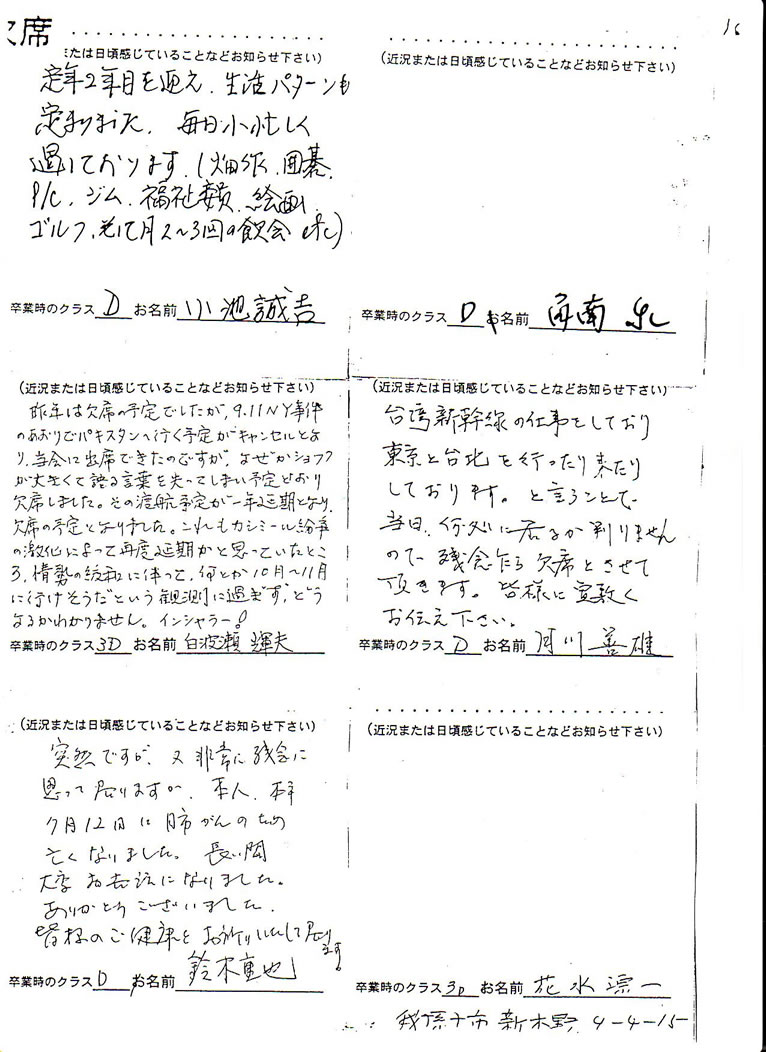 欠席
16
または日頃感じていることなどお知らせ下さい)
定年2年目を迎え、生活パターンも
定まりました。毎日小忙しく
過しております。(畑作、囲碁、
P/C、ジム、福祉委員、絵画、
ゴルフ、そして月2〜3回の飲会 etc)
卒業時のクラス D お名前 小池誠吉
(近況または日頃感じていることなどお知らせ下さい)
卒業時のクラス D お名前
(近況または日頃感じていることなどお知らせ下さい)
昨年は欠席の予定でしたが、9.11NY事件
のあおりでパキスタンへ行く予定がキャンセルとな
り、当会に出席できたのですが、なぜかショック
が大きくて語る言葉を失ってしまい予定どおり
欠席しました。その渡航予定が一年延期となり、
欠席の予定となりました。これもカシミール紛争
の激化によって再度延期かと思っていたとこ
ろ、情勢の緩和に伴って、何とか10月〜11月
に行けそうだという観測に過ぎず、どう
なるかわかりません。インシャラー!
卒業時のクラス 3D お名前 白波瀬 輝夫
(近況または日頃感じていることなどお知らせ下さい)
台湾新幹線の仕事をしており
東京と台北を行ったり来たり
しております。と言うことで
当日、何処に居るか判りません
ので残念乍ら欠席とさせて
頂きます。皆様に宜敷く
お伝え下さい。
卒業時のクラス D お名前 河川 善雄
(近況または日頃感じていることなどお知らせ下さい)
突然ですが、又非常に残念に
思って居りますが、本人、本年
7月12日に肺がんのため
亡くなりました。長い間
大変お世話になりました。
ありがとうございました。
皆様のご健康をお祈りいたして居ります。
卒業時のクラス D お名前 鈴木重也
(近況または日頃感じていることなどお知らせ下さい)
卒業時のクラス 3D お名前 花水 漂一
我孫子市 新木野 4-4-15